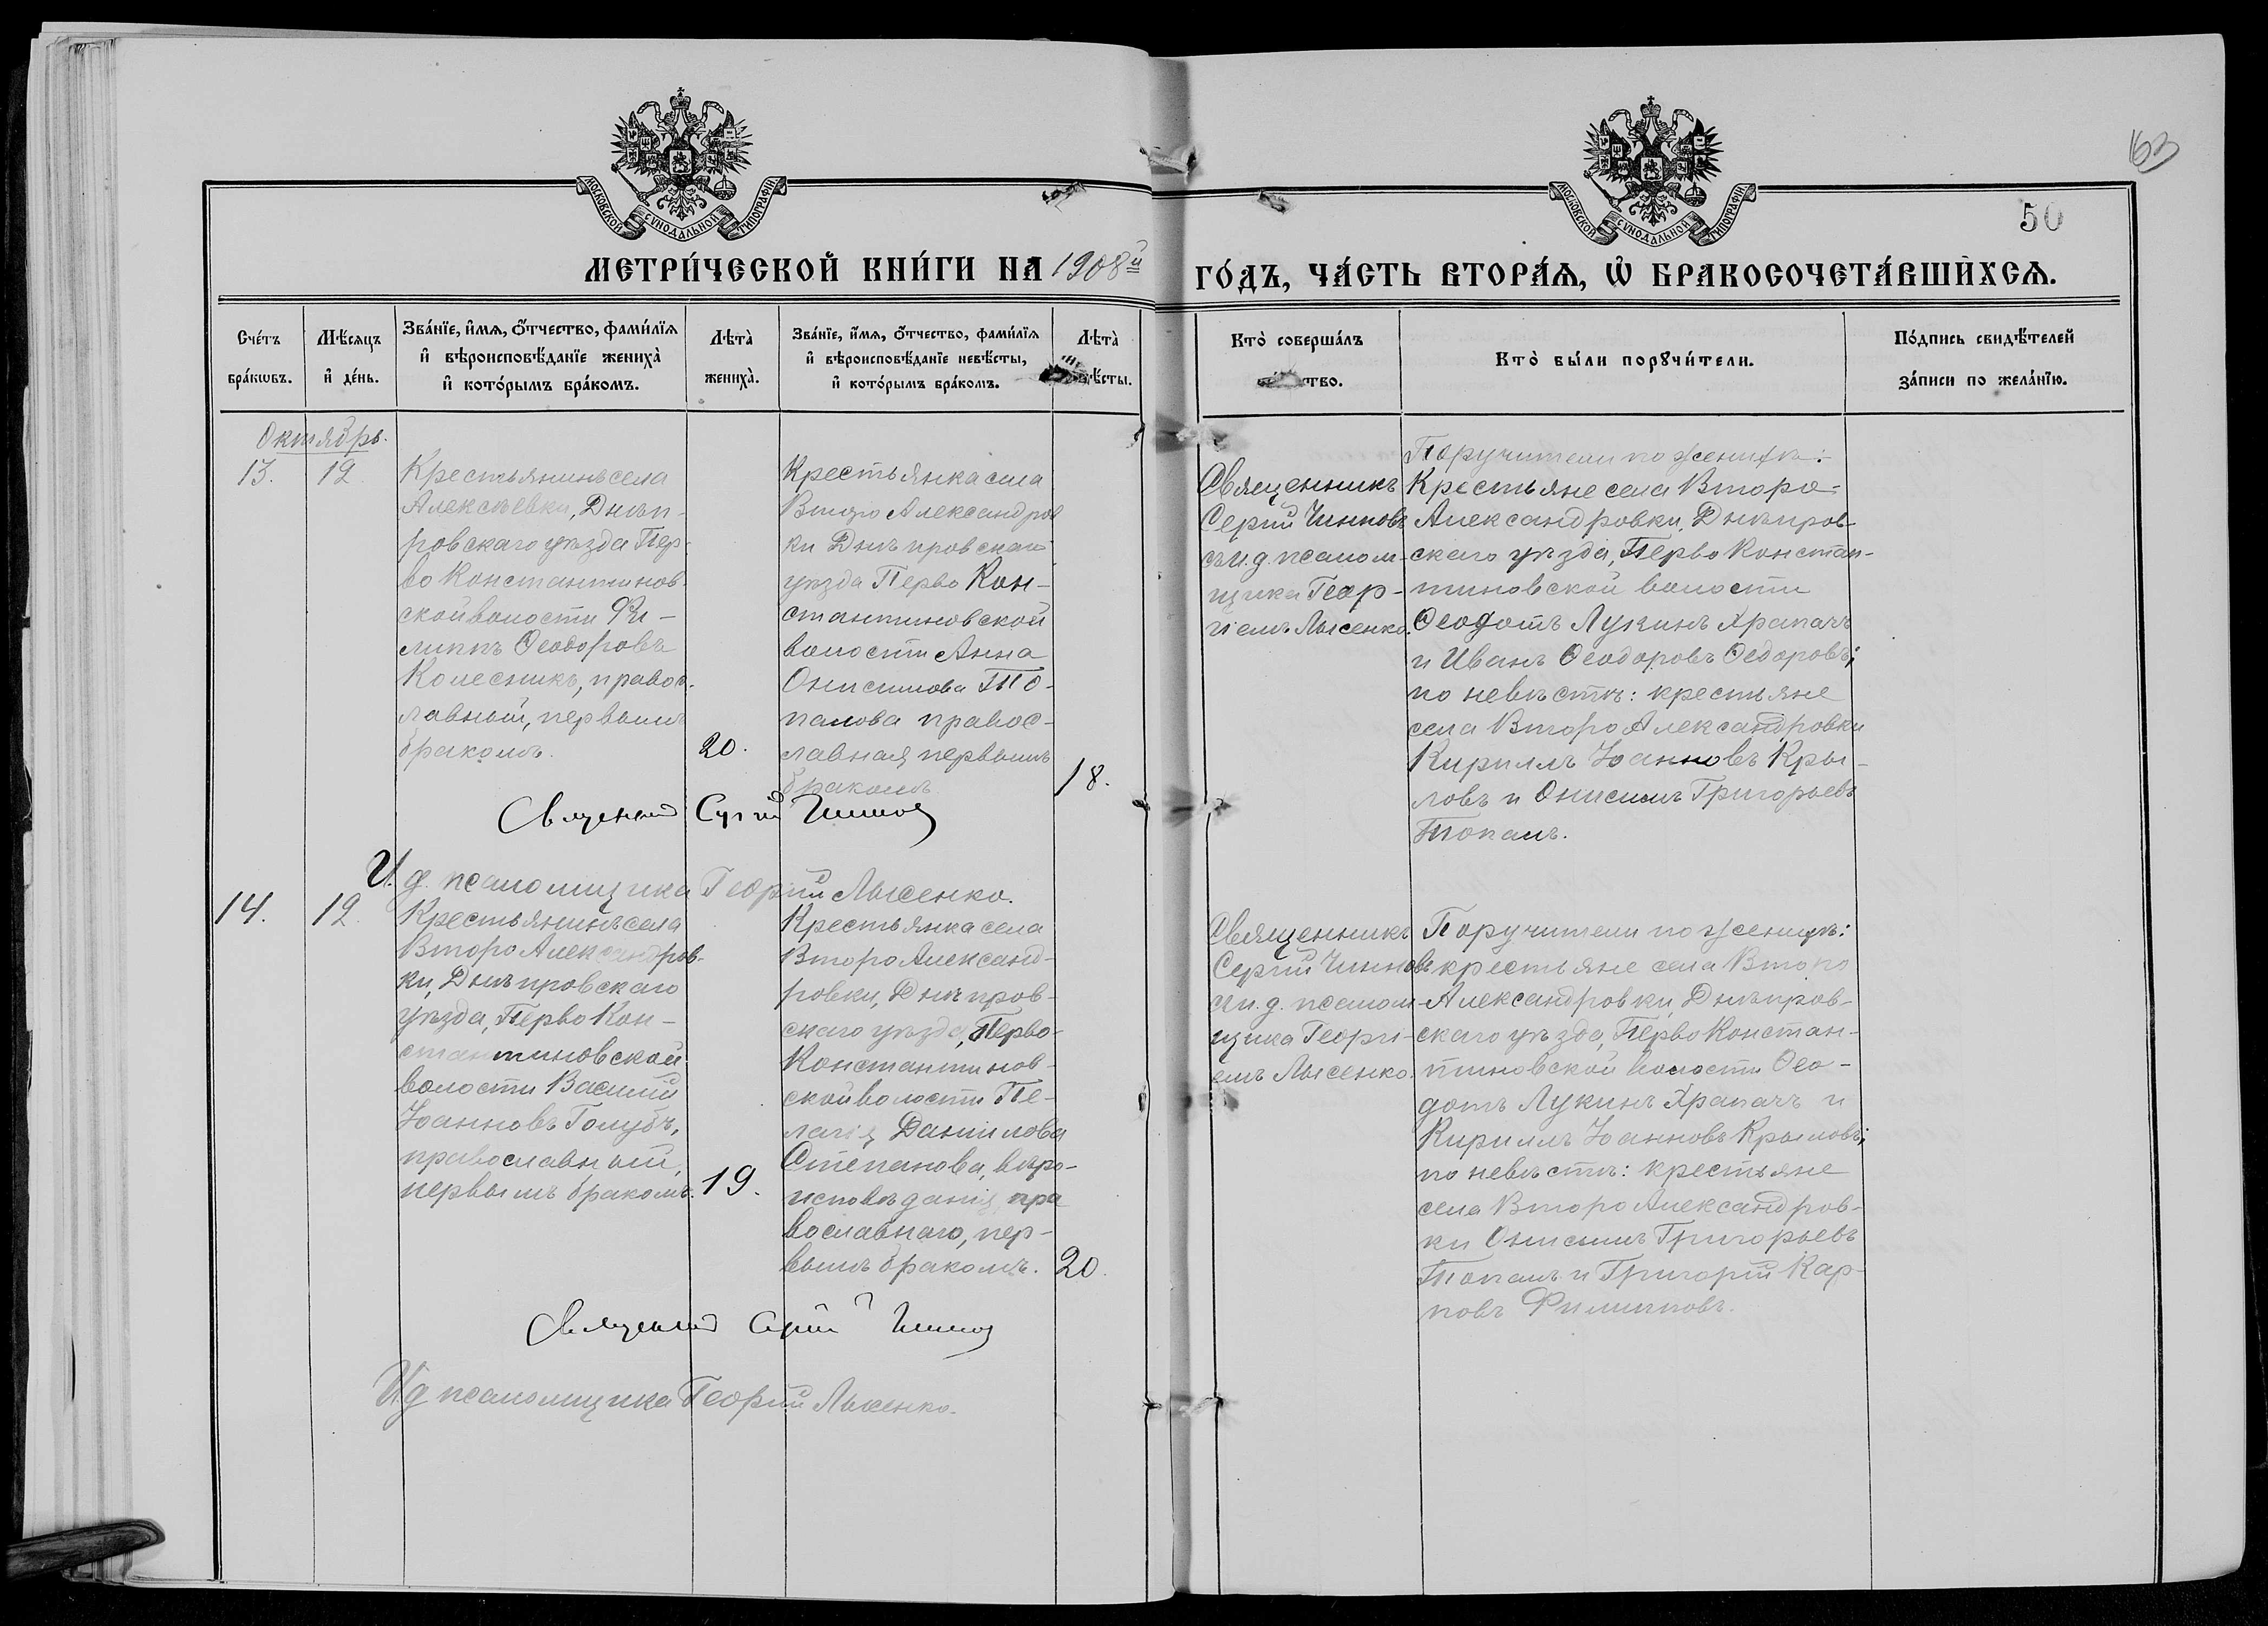 163
50
МОСКОВСКОЙ СѴНОДАЛЬНОЙ ТИПОГРАФІИ
МОСКОВСКОЙ СѴНОДАЛЬНОЙ ТИПОГРАФІИ
МЕТРИ́ЧЕСКОЙ КНИ́ГИ НА 1908й ГО́ДЪ, ЧА́СТЬ ВТОРА́Ѧ, Ѽ БРАКОСОЧЕТА́ВШИХСѦ.
Сче́тъ
бра́кωвъ.
Мѣ́сяцъ
и҆ де́нь.
Зва́нїе, и҆́мя, ѻ҆́тчество, фами́лїя
и҆ вѣроисповѣ́данїе жениха̀
и҆ кото́рымъ бра́комъ.
Лѣта̀
жениха̀.
Зва́нїе, и҆́мя, ѻ҆́тчество, фами́лїя
и҆ вѣроисповѣ́данїе невѣ́сты,
и҆ кото́рымъ бра́комъ.
Лѣта̀
ѣ́сты.
Кто̀ соверша́лъ
тво.
Кто̀ бы́ли порꙋчи́тели.
По́дпись свидѣ́телей
за́писи по жела́нїю.
Октябрь.
13.
12
Крестьянинъ села
Алексѣевки, Днѣп-
ровскаго уѣзда Пер-
во Константинов-
ской волости Фи-
липпъ Ѳеодоровъ
Колесникъ, правос-
лавный, первымъ
бракомъ.
20.
Крестьянка села
Второ Александров
ки Днѣпровскаго
уѣзда Перво Кон-
стантиновской
волости Анна
Онисимова То-
палова правос-
лавная первымъ
бракомъ
18.
Священникъ
Сергій Чинновъ
съ и. д. псалом-
щика Геор-
гіемъ Лысенко.
Поручители по женихѣ:
Крестьяне села Второ-
Александровки, Днѣпров-
скаго уѣзда, Перво Констан-
тиновской волости
Ѳеодотъ Лукинъ Храпачъ
и Иванъ Ѳеодоровъ Ѳедоровъ;
по невѣстѣ: крестьяне
села Второ Александровки
Кириллъ Іоанновъ Кры-
ловъ и Онисимъ Григорьевъ
Топалъ.
Священникъ Сергій Чинновъ
И. д. псаломщика Георгій Лысенко.
14.
12
Крестьянинъ села
Второ Александров-
ки, Днѣпровскаго
уѣзда, Перво Кон-
стантиновской
волости Василій
Іоанновъ Голубъ,
православный,
первымъ бракомъ.
19.
Крестьянка села
Второ Александ-
ровки, Днѣпров-
скаго уѣзда, Перво-
Константинов-
ской волости Пе-
лагія Даніилова
Степанова, вѣро-
исповѣданія пра
вославнаго, пер-
вымъ бракомъ.
20.
Священникъ
Сергій Чинновъ
и и. д. псалом-
щика Георгі-
емъ Лысенко.
Поручители по женихѣ:
крестьяне села Второ
Александровки, Днѣпров-
скаго уѣзда, Перво Констан-
тиновской волости Ѳео-
дотъ Лукинъ Храпачъ и
Кириллъ Іоанновъ Крыловъ;
по невѣстѣ: крестьяне
села Второ Александров-
ки Онисимъ Григорьевъ
Топалъ и Григорій Кар-
повъ Филипповъ.
Священникъ Сергій Чинновъ
И д псаломщика Георгій Лысенко.